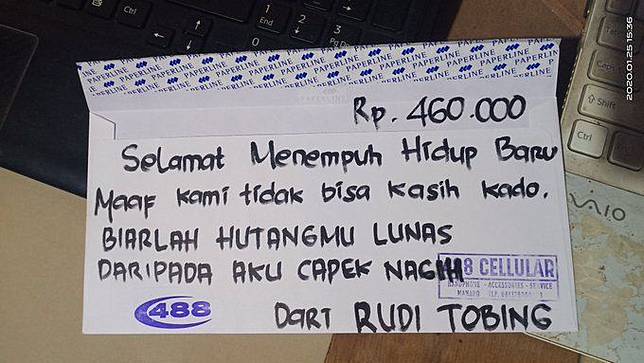 PAPERLINE PAPERLINE PAPERLINE PAPERLINE PAPERLINE
Rp. 460.000
Selamat Menempuh Hidup Baru
Maaf kami tidak bisa kasih kado.
BIARLAH HUTANGMU LUNAS
DARIPADA AKU CAPEK NAGIH
8 CELLULAR
HANDPHONE - ACCESSORIES - SERVICE
MANADO
488
DARI RUDI TOBING
2020.01.25 15:36
Ctrl
End
1
2
3
0
Shift
Ctrl
VAIO